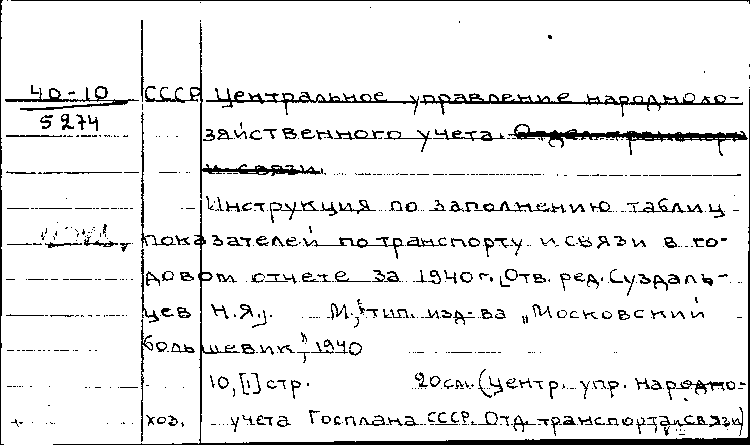 40-10 СССР Центральное управление народнохо-
5274 зяйственного учета. Отдел транспорта
и связи.
Инструкция по заполнению таблиц
показателей по транспорту и связи в го-
довом отчете за 1940 г. [Отв. ред. Суздаль-
цев Н.Я.]. М., тип. изд-ва "Московский
большевик", 1940
10, [1] стр. 20 см. (Центр. упр. народно-
хоз. учета Госплана СССР. Отд. транспорта и связи)